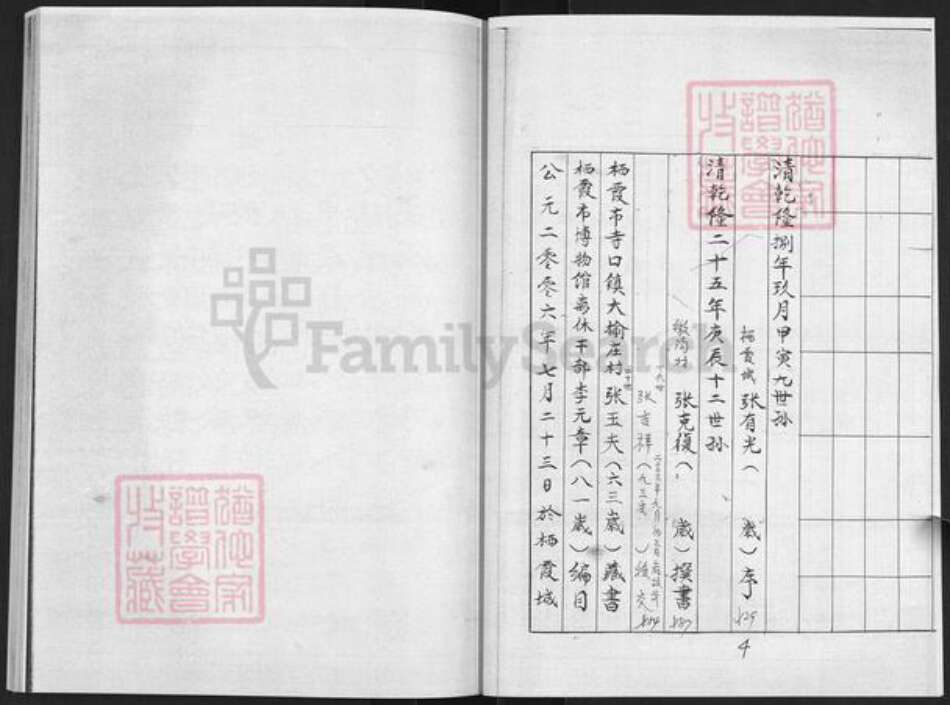 清乾隆捌年玖月甲寅九世孙
栖霞城 张有光（ 岁）序
清乾隆二十五年庚辰十二世孙
张克復（ 岁）撰書
张吉祥（九三岁）
栖霞市寺口鎮大榆庄村张玉夫（六三歲）藏書
栖霞市博物馆离休干部李元章（八一歲）编目
公元二零零六年七月二十三日於栖霞城
4
FamilySearch
譜學會
收藏
譜學會
收藏